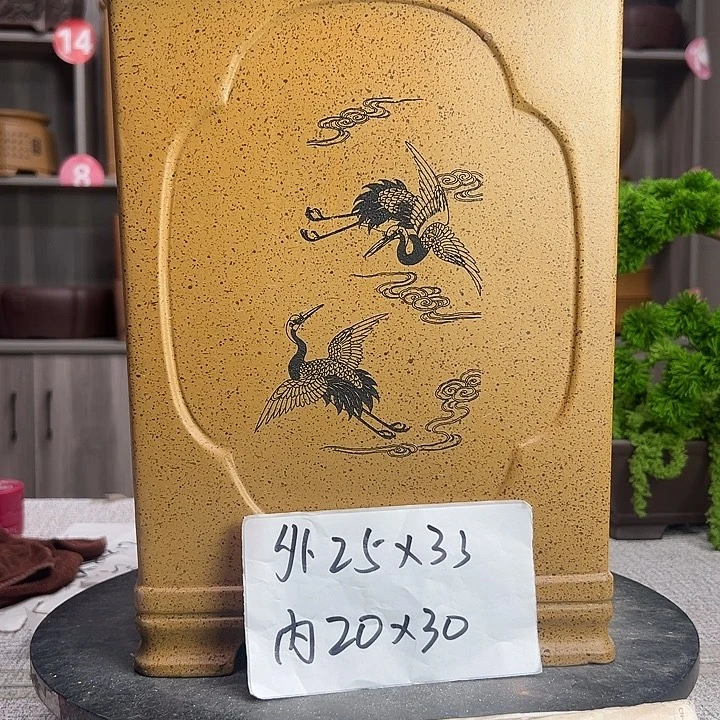 14
8
外25×33
内20×30